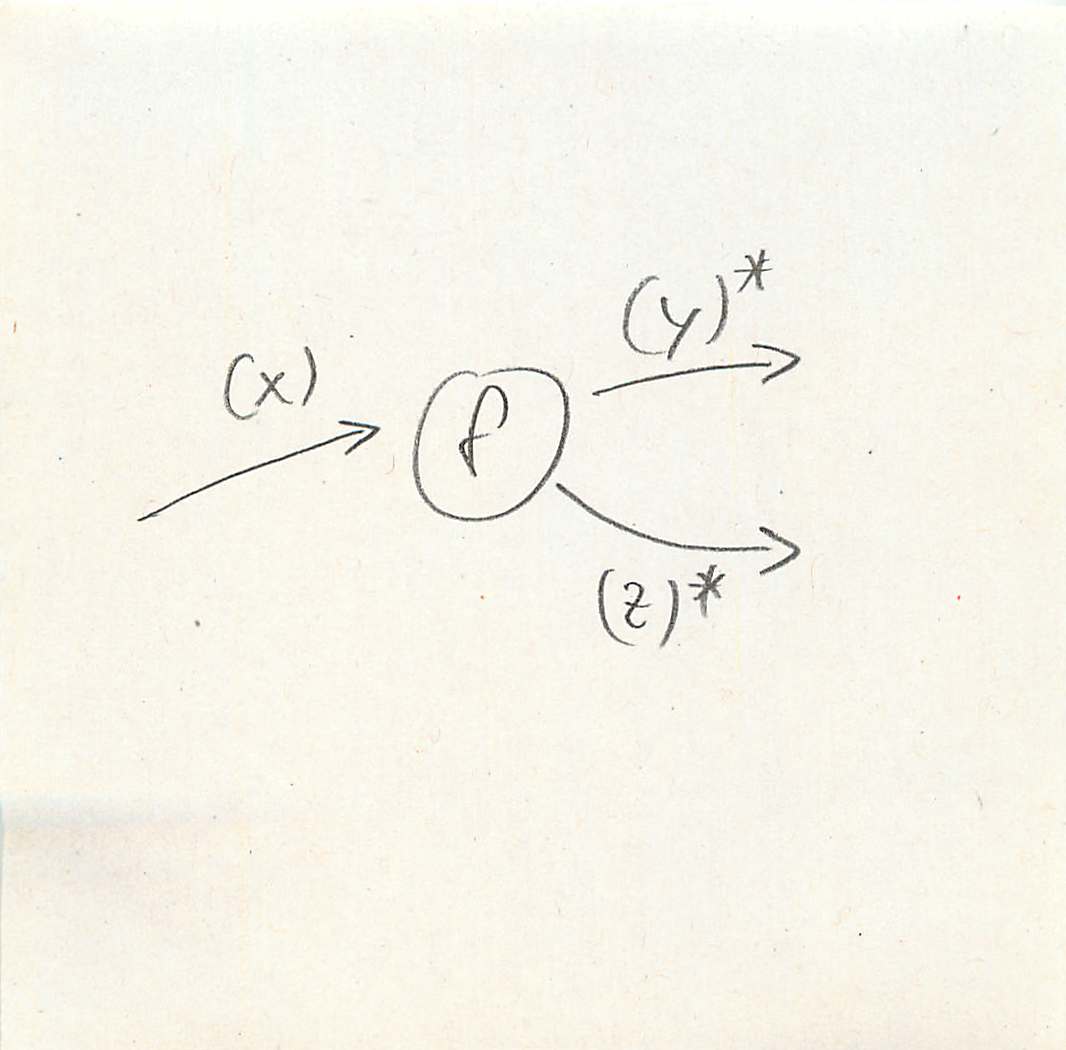 (x)
f
(y)*
(z)*